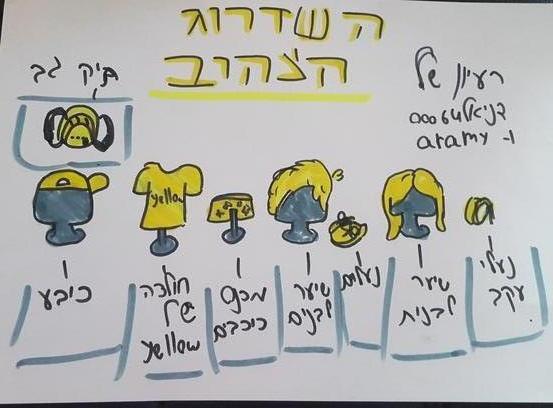 השדרוג
הצהיב
תיק גב
רעיון של
דניאל64000
ו- aramy
yellow
כיבע
חולצה
של
yellow
מכנס
כיכבים
שיער
לבנים
נעלים
שיער
לבנית
נעלי
עקב